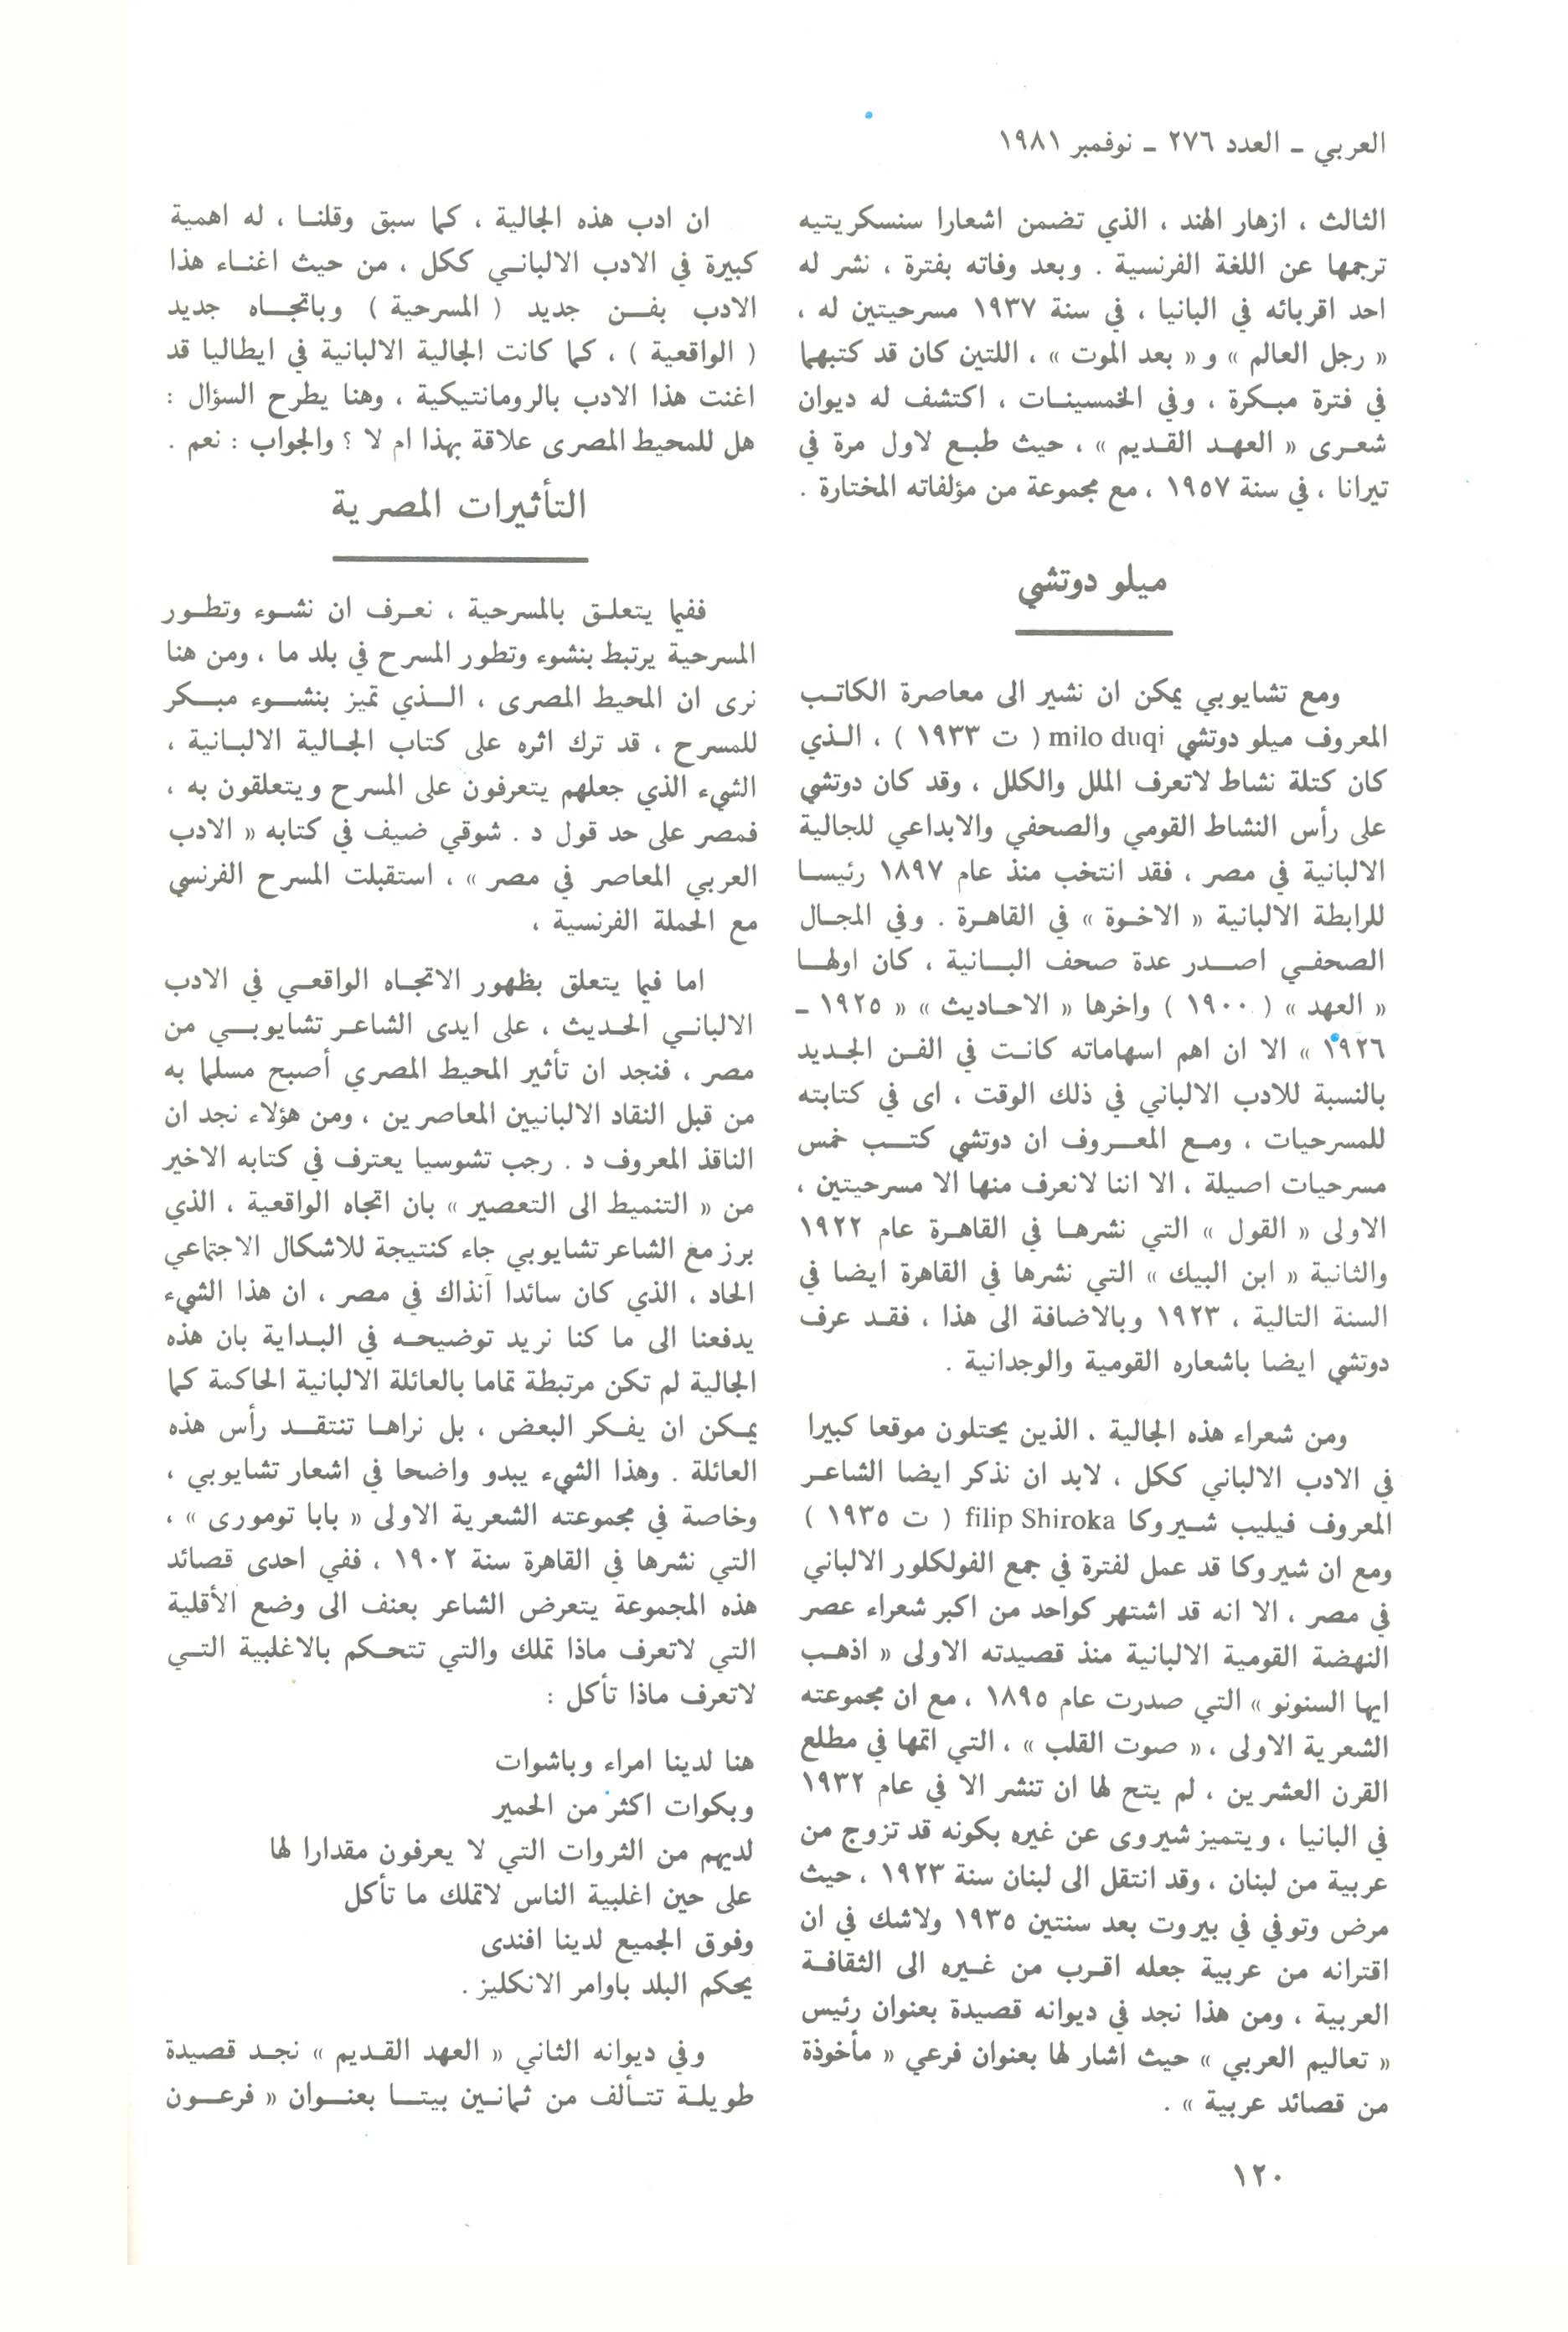 العربي ـ العدد ٢٧٦ ـ نوفمبر ١٩٨١
الثالث ، ازهار الهند ، الذي تضمن اشعارا سنسكريتيه
ترجمها عن اللغة الفرنسية . وبعد وفاته بفترة ، نشر له
احد اقربائه في البانيا ، في سنة ١٩٣٧ مسرحيتين له ،
« رجل العالم » و « بعد الموت » ، اللتين كان قد كتبهما
في فترة مبكرة ، وفي الخمسينات ، اكتشف له ديوان
شعرى « العهد القديم » ، حيث طبع لاول مرة في
تيرانا ، في سنة ١٩٥٧ ، مع مجموعة من مؤلفاته المختارة .
ميلو دوتشي
ومع تشايوبي يمكن ان نشير الى معاصرة الكاتب
المعروف ميلو دوتشي milo duqi ( ت ١٩٣٣ ) ، الذي
كان كتلة نشاط لاتعرف الملل والكلل ، وقد كان دوتشي
على رأس النشاط القومي والصحفي والابداعي للجالية
الالبانية في مصر ، فقد انتخب منذ عام ١٨٩٧ رئيسا
للرابطة الالبانية « الاخوة » في القاهرة . وفي المجال
الصحفي اصدر عدة صحف البانية ، كان اولها
« العهد » ( ١٩٠٠ ) واخرها « الاحاديث » « ١٩٢٥ ـ
١٩٢٦ » الا ان اهم اسهاماته كانت في الفن الجديد
بالنسبة للادب الالباني في ذلك الوقت ، اى في كتابته
للمسرحيات ، ومع المعروف ان دوتشي كتب خمس
مسرحيات اصيلة ، الا اننا لانعرف منها الا مسرحيتين ،
الاولى « القول » التي نشرها في القاهرة عام ١٩٢٢
والثانية « ابن البيك » التي نشرها في القاهرة ايضا في
السنة التالية ، ١٩٢٣ وبالاضافة الى هذا ، فقد عرف
دوتشي ايضا باشعاره القومية والوجدانية .
ومن شعراء هذه الجالية ، الذين يحتلون موقعا كبيرا
في الادب الالباني ككل ، لابد ان نذكر ايضا الشاعر
المعروف فيليب شيروكا filip Shiroka ( ت ١٩٣٥ )
ومع ان شيروكا قد عمل لفترة في جمع الفولكلور الالباني
في مصر ، الا انه قد اشتهر كواحد من اكبر شعراء عصر
النهضة القومية الالبانية منذ قصيدته الاولى « اذهب
ايها السنونو » التي صدرت عام ١٨٩٥ ، مع ان مجموعته
الشعرية الاولى ، « صوت القلب » ، التي اتمها في مطلع
القرن العشرين ، لم يتح لها ان تنشر الا في عام ١٩٣٢
في البانيا ، ويتميز شيروى عن غيره بكونه قد تزوج من
عربية من لبنان ، وقد انتقل الى لبنان سنة ١٩٢٣ ، حيث
مرض وتوفي في بيروت بعد سنتين ١٩٣٥ ولاشك في ان
اقترانه من عربية جعله اقرب من غيره الى الثقافة
العربية ، ومن هذا نجد في ديوانه قصيدة بعنوان رئيس
« تعاليم العربي » حيث اشار لها بعنوان فرعي « مأخوذة
من قصائد عربية » .
ان ادب هذه الجالية ، كما سبق وقلنا ، له اهمية
كبيرة في الادب الالباني ككل ، من حيث اغناء هذا
الادب بفن جديد ( المسرحية ) وباتجاه جديد
( الواقعية ) ، كما كانت الجالية الالبانية في ايطاليا قد
اغنت هذا الادب بالرومانتيكية ، وهنا يطرح السؤال :
هل للمحيط المصرى علاقة بهذا ام لا ؟ والجواب : نعم .
التأثيرات المصرية
ففيما يتعلق بالمسرحية ، نعرف ان نشوء وتطور
المسرحية يرتبط بنشوء وتطور المسرح في بلد ما ، ومن هنا
نرى ان المحيط المصرى ، الذي تميز بنشوء مبكر
للمسرح ، قد ترك اثره على كتاب الجالية الالبانية ،
الشيء الذي جعلهم يتعرفون على المسرح ويتعلقون به ،
فمصر على حد قول د . شوقي ضيف في كتابه « الادب
العربي المعاصر في مصر » ، استقبلت المسرح الفرنسي
مع الحملة الفرنسية ،
اما فيما يتعلق بظهور الاتجاه الواقعي في الادب
الالباني الحديث ، على ايدى الشاعر تشايوبي من
مصر ، فنجد ان تأثير المحيط المصري أصبح مسلما به
من قبل النقاد الالبانيين المعاصرين ، ومن هؤلاء نجد ان
الناقذ المعروف د . رجب تشوسيا يعترف في كتابه الاخير
من « التنميط الى التعصير » بان اتجاه الواقعية ، الذي
برز مع الشاعر تشايوبي جاء كنتيجة للاشكال الاجتماعي
الحاد ، الذي كان سائدا آنذاك في مصر ، ان هذا الشيء
يدفعنا الى ما كنا نريد توضيحه في البداية بان هذه
الجالية لم تكن مرتبطة تماما بالعائلة الالبانية الحاكمة كما
يمكن ان يفكر البعض ، بل نراها تنتقد رأس هذه
العائلة . وهذا الشيء يبدو واضحا في اشعار تشايوبي ،
وخاصة في مجموعته الشعرية الاولى « بابا تومورى » ،
التي نشرها في القاهرة سنة ١٩٠٢ ، ففي احدى قصائد
هذه المجموعة يتعرض الشاعر بعنف الى وضع الأقلية
التي لاتعرف ماذا تملك والتي تتحكم بالاغلبية التي
لاتعرف ماذا تأكل :
هنا لدينا امراء وباشوات
وبكوات اكثر من الحمير
لديهم من الثروات التي لا يعرفون مقدارا لها
على حين اغلبية الناس لاتملك ما تأكل
وفوق الجميع لدينا افندى
يحكم البلد باوامر الانكليز .
وفي ديوانه الثاني « العهد القديم » نجد قصيدة
طويلة تتألف من ثمانين بيتا بعنوان « فرعون
١٢٠